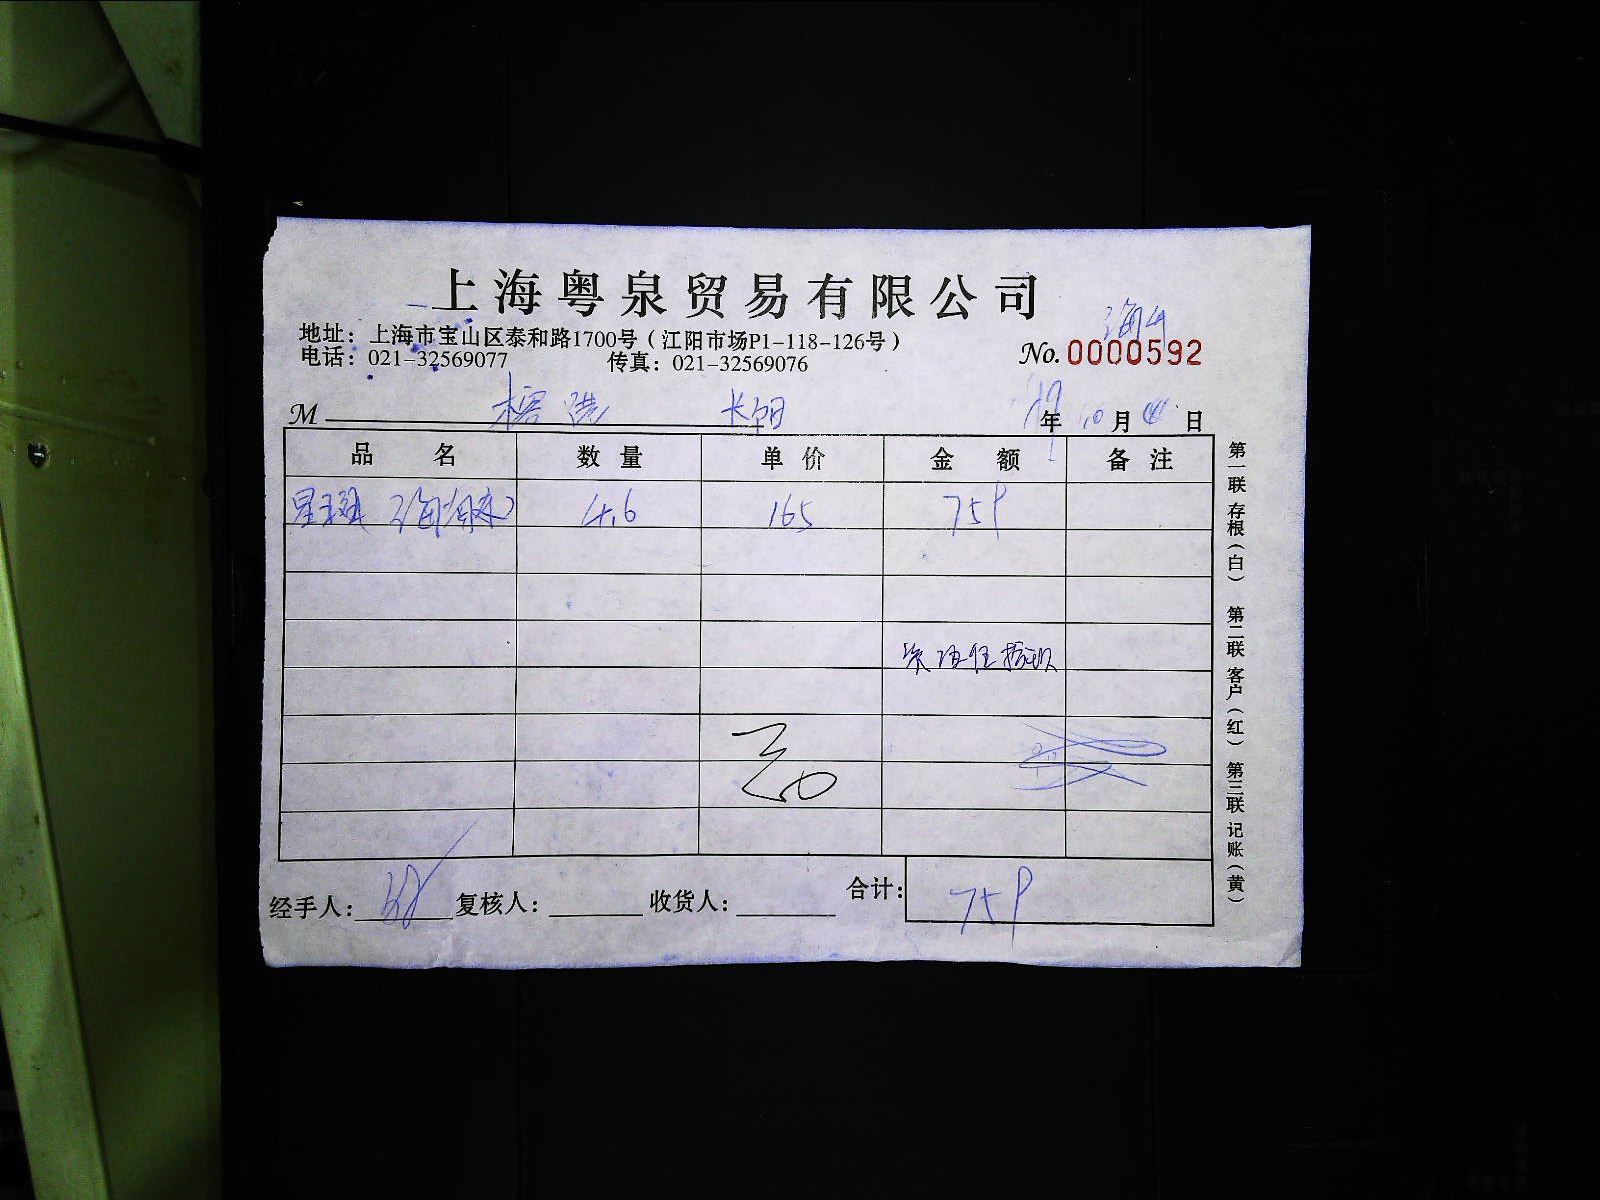 上海粤泉贸易有限公司
地址：上海市宝山区泰和路1700号（江阳市场P1-118-126号）
电话：021-32569077 传真：021-32569076
No.0000592
M 年 10 月 日
品 名 数 量 单 价 金 额 备 注
4.6 165 759
经手人： 复核人： 收货人： 合计： 759
第一联 存根（白） 第二联 客户（红） 第三联 记账（黄）